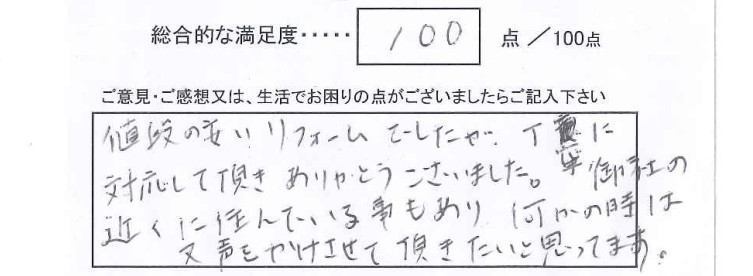 総合的な満足度・・・・・ 100 点 ／100点
ご意見・ご感想又は、生活でお困りの点がございましたらご記入下さい
値段の安いリフォームでしたが、丁寧に
対応して頂きありがとうございました。御社の
近くに住んでいる事もあり何かの時は
又声をかけさせて頂きたいと思ってます。